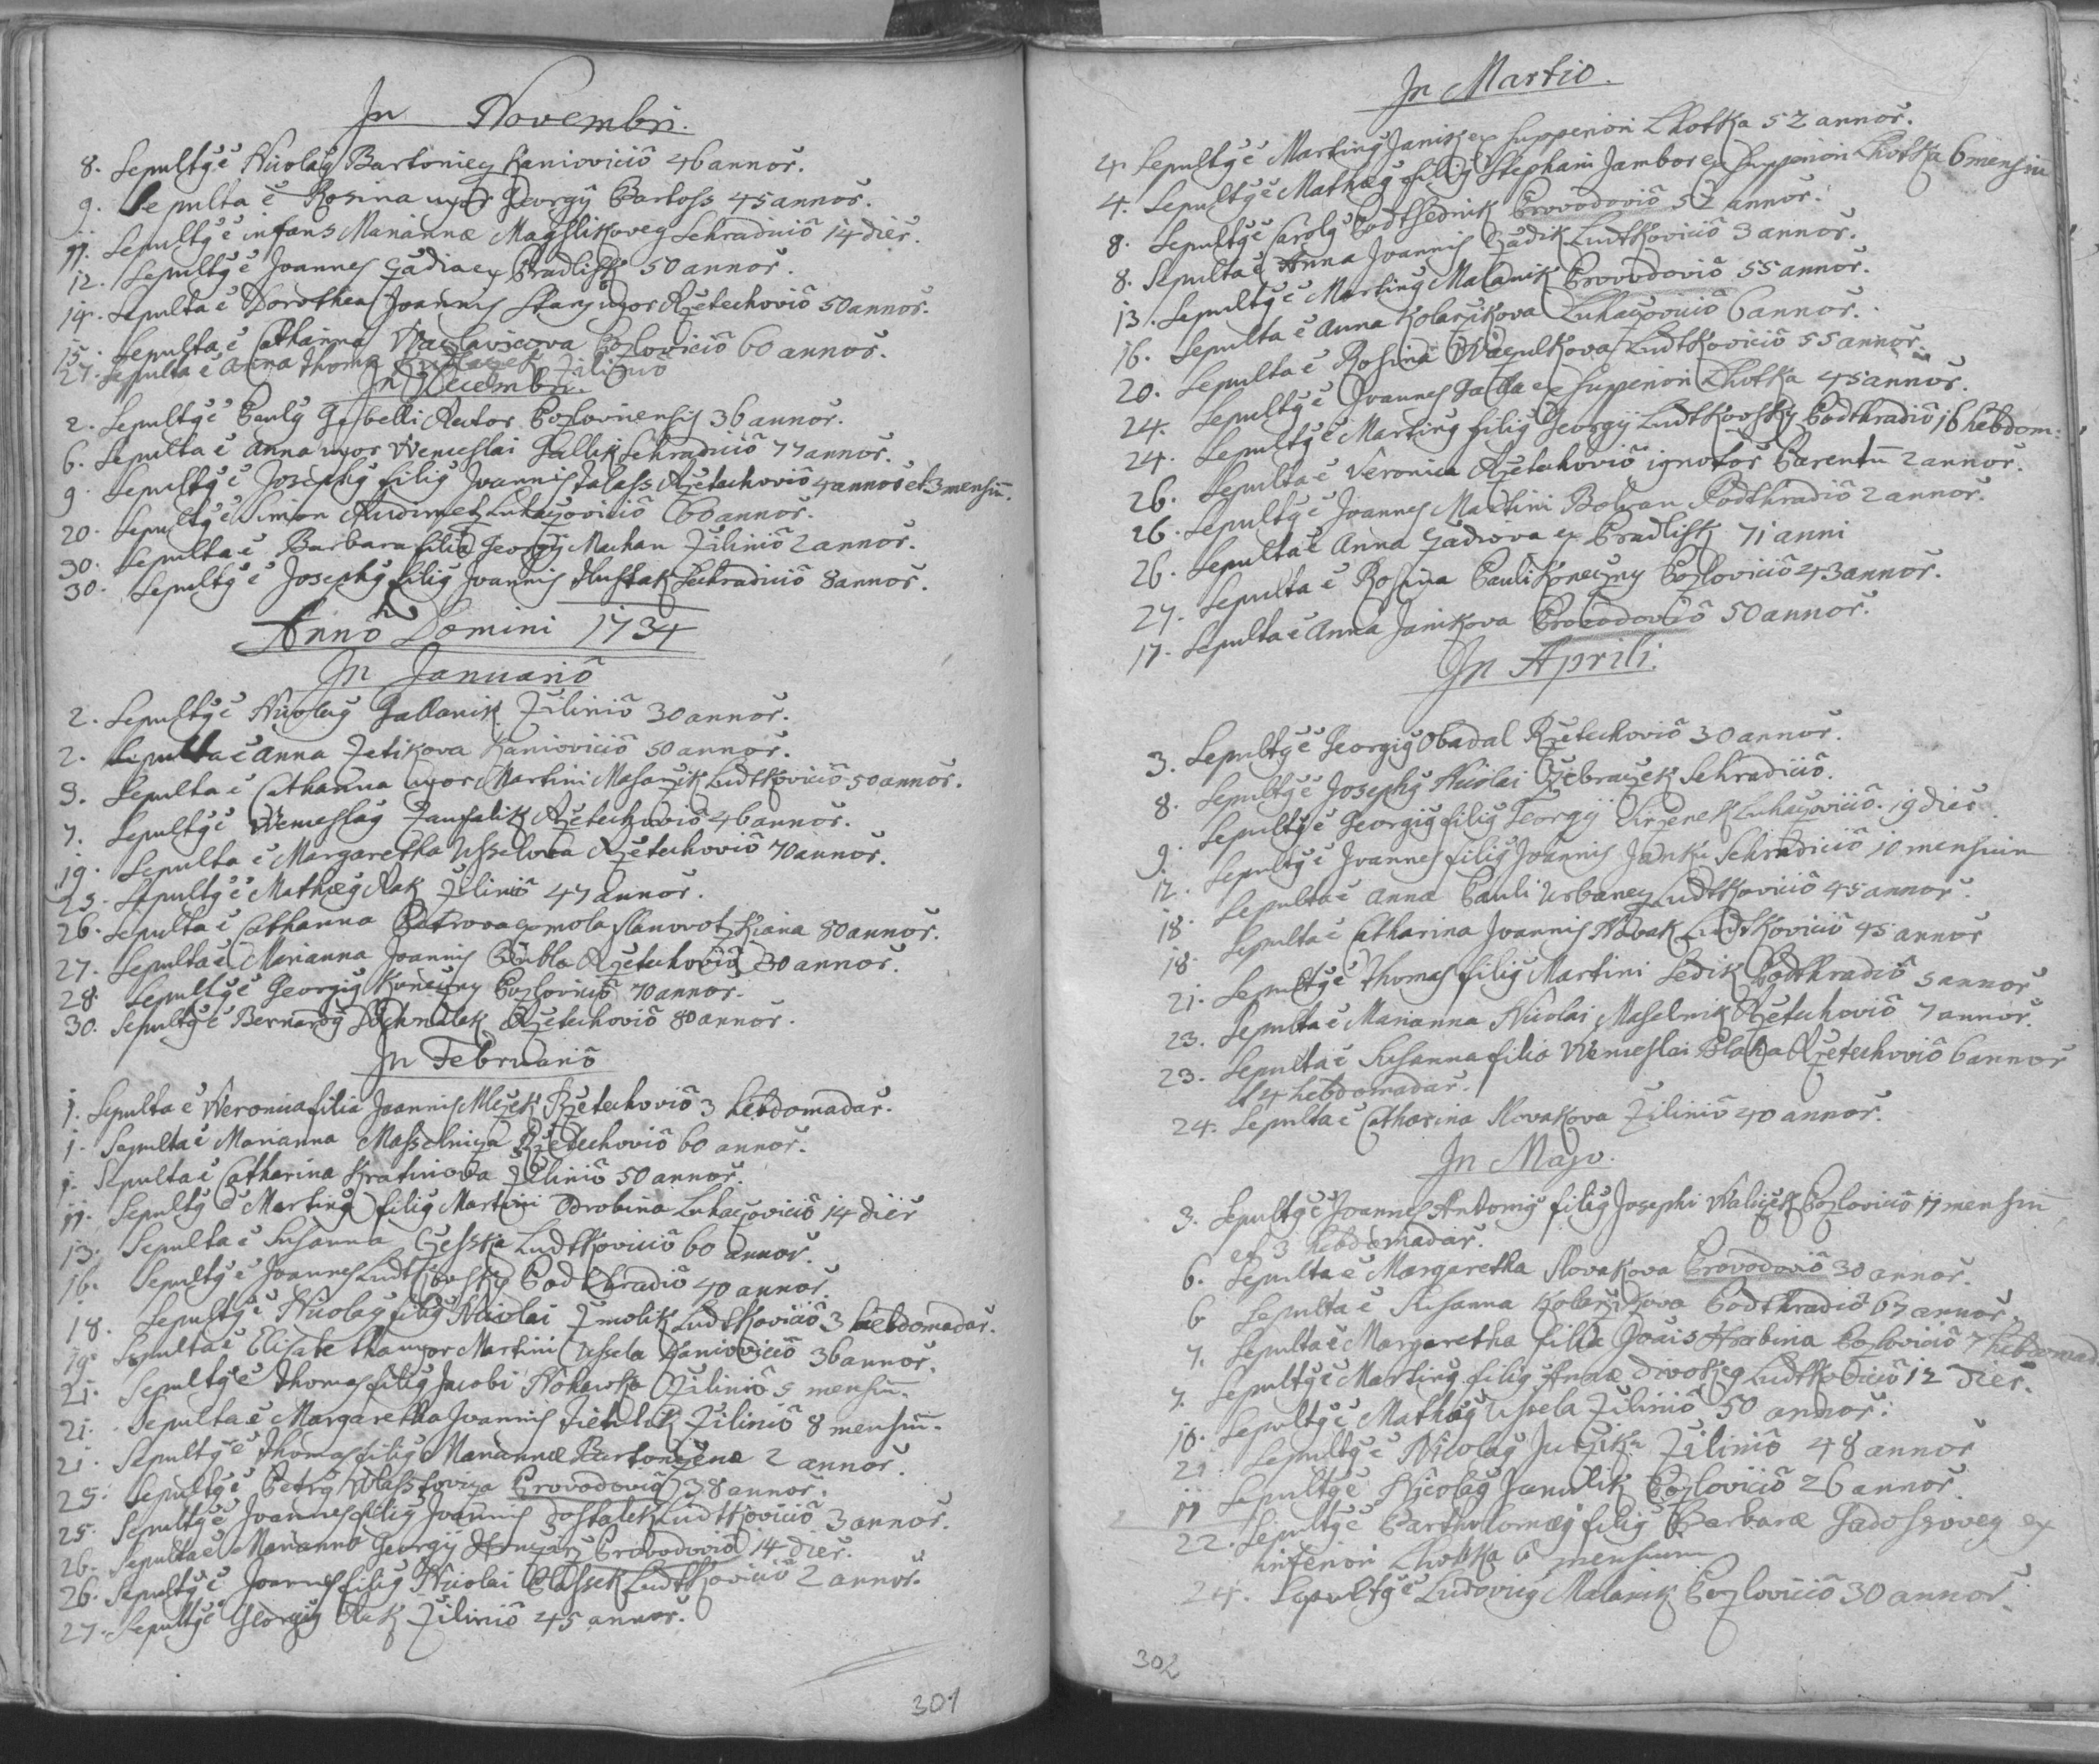 In Novembri.
8. Sepultg ē Nicolag Bartoniez Kaniovició 46 annoř.
9. Sepulta ē Rosina uxor Georgÿ Bartoss 45 annoř.
11. Sepultg ē infans Mariannæ Sehradició 14 dieř.
12. Sepultg ē Joannes ex Pradlisk 50 annoř.
14. Sepulta ē Dorothea Joannis Stary uxor Rzetechovió 50 annoř.
15. Sepulta ē Catharina Pozlovició 60 annoř.
27. Sepulta ē Anna Thomæ Zilinió
In Decembri.
2. Sepultg ē Paulg Rector Pozlovicensis 36 annoř.
6. Sepulta ē Anna uxor Wenceslai Gallik Sehradició 77 annoř.
9. Sepultg ē Josephg filig Joannis Talass Rzetechovió 4 annoř et 3 mensiū.
20. Sepultg ē Simon Luhaczovició 60 annoř.
30. Sepulta ē Barbara filia Georgÿ Machan Zilinió 2 annoř.
30. Sepultg ē Josephg filig Joannis Hustak Sehradició 8 annoř.
Anno Domini 1734
In Januarió
2. Sepultg ē Nicolag Gallanik Zilinió 30 annoř.
2. Sepulta ē Anna Zetikova Kaniovició 50 annoř.
3. Sepulta ē Catharina uxor Martini Masarzik Ludtkovició 50 annoř.
7. Sepultg ē Wenceslag Zaufalik Rzetechovió 46 annoř.
19. Sepulta ē Margaretha Usselova Rzetechovió 70 annoř.
25. Sepultg ē Mathæg Rak Zilinió 47 annoř.
26. Sepulta ē Catharina Petrova 80 annoř.
27. Sepulta ē Marianna Joannis Rzetechovió 30 annoř.
28. Sepultg ē Georgig Koneczny Pozlovició 70 annor.
30. Sepultg ē Bernardg Rzetechovió 80 annoř.
In Februarió
1. Sepulta ē Weronica filia Joannis Mlczek Rzetechovió 3 hebdomadař.
1. Sepulta ē Marianna Masselnicza Rzetechovió 60 annoř.
1. Sepulta ē Catharina Kratinova Zilinió 50 annoř.
11. Sepultg ē Marting filig Martini Drobina Luhaczovició 14 dieř
13. Sepulta ē Susanna Czesska Ludtkovició 60 annoř.
16. Sepultg ē Joannes Ludtkovsky Podthradió 40 annoř.
18. Sepultg ē Nicolag filig Nicolai Zmolik Ludtkovició 3 hebdomadař.
19. Sepulta ē Elisabetha uxor Martini Ussela Kaniovició 36 annoř.
21. Sepultg ē Thomas filig Jacobi Zilinió 5 mensiū.
21. Sepulta ē Margaretha Joannis Zilinió 8 mensiū.
21. Sepultg ē Thomas filig Mariannæ Bartonczenæ 2 annoř.
25. Sepultg ē Petrg Wlasstovicza Provodovió 38 annoř.
25. Sepultg ē Joannes filig Joannis Dostalek Ludtkovició 3 annoř.
26. Sepulta ē Marianna Georgÿ Provodovió 14 dieř.
26. Sepultg ē Joannes filig Nicolai Blassek Ludtkovició 2 annoř.
27. Sepultg ē Georgig Rak Zilinió 45 annoř.
301
In Martio.
4. Sepultg ē Marting Janik ex Supperiori Lhotka 52 annoř.
4. Sepultg ē Mathæg filig Stephani Jambor ex Supperiori Lhotka 6 mensiū
8. Sepultg ē Carolg Podtsednik Provodovió 52 annoř.
8. Sepulta ē Anna Joannis Gadik Ludtkovició 3 annoř.
13. Sepultg ē Marting Malanik Provodovió 55 annoř.
16. Sepulta ē Anna Kolarzikova Luhaczovició 6 annoř.
20. Sepulta ē Rosina Waczulkova Ludtkovició 55 annoř.
24. Sepultg ē Joannes Galla ex Supperiori Lhotka 45 annoř.
24. Sepultg ē Marting filig Georgÿ Ludtkovsky Podthradió 16 hebdom:
26. Sepulta ē Veronica Rzetechovió ignotoř Parentū 2 annoř.
26. Sepultg ē Joannes Martini Podthradió 2 annoř.
26. Sepulta ē Anna ex Pradlisk 71 anni
27. Sepulta ē Rosina Pauli Koneczny Pozlovició 43 annoř.
17. Sepulta ē Anna Janikova Provodovió 50 annoř.
In Aprili.
3. Sepultg ē Georgig Obadal Rzetechovió 30 annoř.
8. Sepultg ē Josephg Nicolai Zebraczek Sehradició.
9. Sepultg ē Georgig filig Georgÿ Luhaczovició. 19 dieř
12. Sepultg ē Joannes filig Joannis Janku Sehradició 10 mensium
18. Sepulta ē Anna Pauli Urbanez Ludtkovició 45 annoř.
18. Sepulta ē Catharina Joannis Novak Ludtkovició 45 annoř
21. Sepultg ē Thomas filig Martini Sedik Podthradió 5 annoř
23. Sepulta ē Marianna Nicolai Maselnik Rzetechovió 7 annoř.
23. Sepulta ē Susanna filia Wenceslai Blaha Rzetechovió 6 annoř
et 4 hebdomadař.
24. Sepulta ē Catharina Novakova Zilinió 40 annoř.
In Majo.
3. Sepultg ē Joannes Antonig filig Josephi Waliczek Pozlovició 11 mensiū
et 3 hebdomadař.
6. Sepulta ē Margaretha Novakova Provodovió 30 annoř.
6 Sepulta ē Susanna Kolarzikova Podthradió 67 annoř.
7. Sepulta ē Margaretha filia Joais Hrabina Pozlovició 7 hebdomad
7. Sepultg ē Marting filig Annæ Divokeg Ludtkovició 12 dieř.
10. Sepultg ē Mathæg Ussela Zilinió 50 annoř.
21. Sepultg ē Nicolag Zilinió 48 annoř
11 Sepultg ē Nicolag Janulik Pozlovició 26 annoř.
22. Sepultg ē Bartholomæg filig Barbaræ Gadossoveg ex
inferiori Lhotka 6 mensium
24. Sepultg ē Ludovicg Malanik Pozlovició 30 annoř.
302